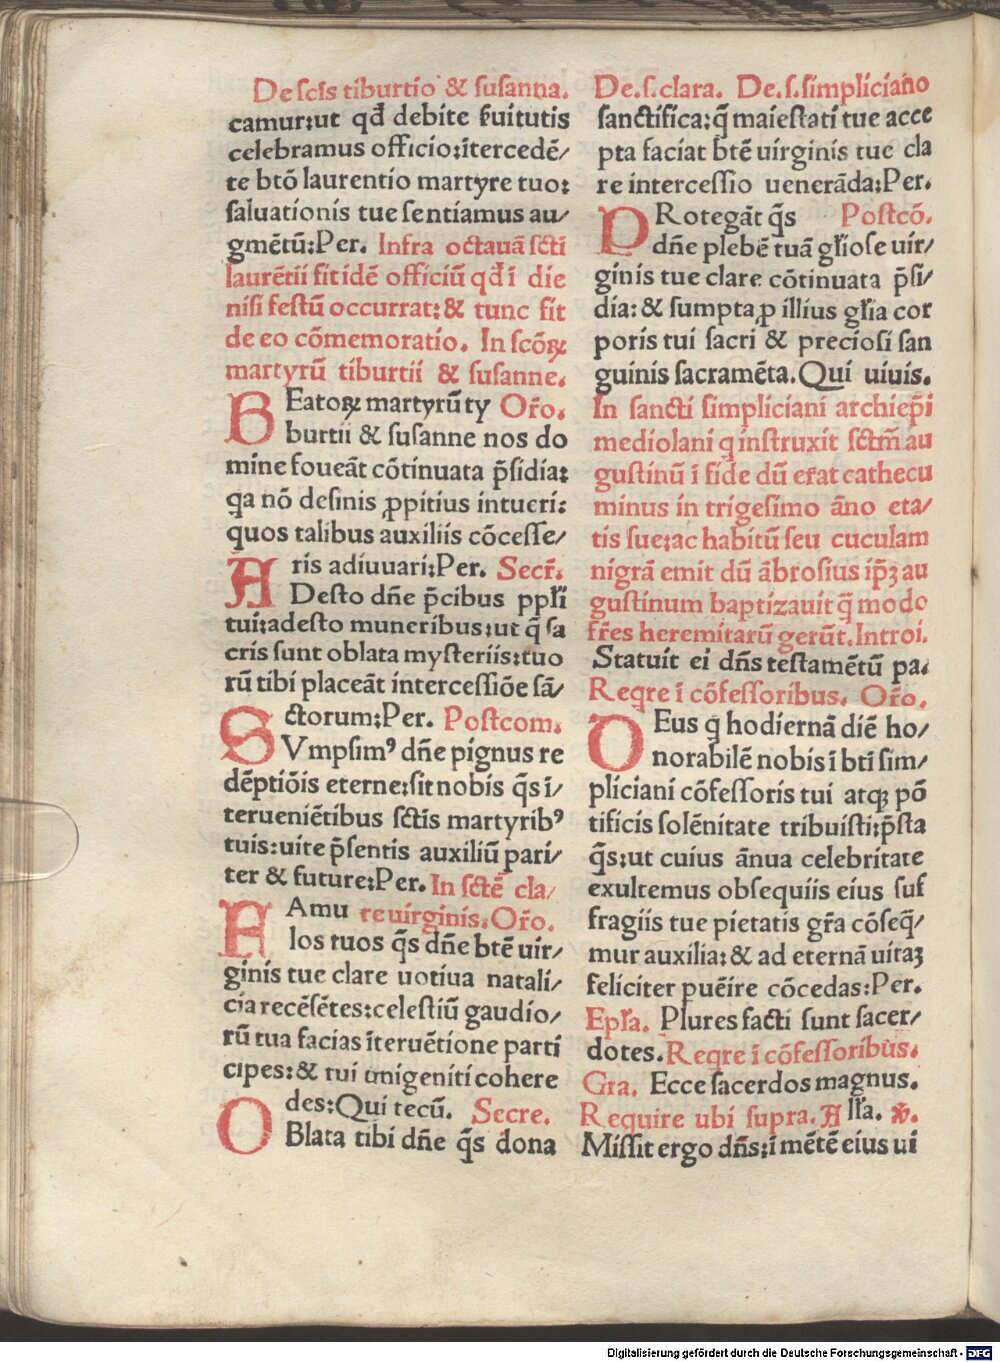 De scīs tiburtio & susanna.
camur:ut qđ debite ẜuitutis
celebramus officio:ītercedē/
te btō laurentio martyre tuo:
saluationis tue sentiamus au/
gmētū:Per. Infra octauā scti
laurētii fit idē officiū qđ ī die
nisi festū occurrat:& tunc fit
de eo cōmemoratio. In scōꝝ
martyrū tiburtii & susanne.
BEatoꝝ martyrū ty Or̄o.
burtii & susanne nos do
mine foueāt cōtinuata p̄sidia:
qa nō desinis ꝓpitius intueri:
quos talibus auxiliis cōcesse/
ris adiuuari:Per. Secr̄.
ADesto dn̄e p̄cibus ppłi
tui:adesto muneribus:ut q̄ sa
cris sunt oblata mysteriis:tuo
rū tibi placeāt intercessiōe sā/
ctorum:Per. Postcom.
SVmpsimꝰ dn̄e pignus re
dēptiōis eterne:sit nobis q̄s ī/
terueniētibus sctīs martyribꝰ
tuis:uite p̄sentis auxiliū pari/
ter & future:Per. In sctē cla/
FAmu re uirginis. Or̄o.
los tuos q̄s dn̄e btē uir/
ginis tue clare uotiua natali/
cia recēsētes:celestiū gaudio/
rū tua facias īteruētione parti
cipes:& tui unigeniti cohere
des:Qui tecū. Secre.
OBlata tibi dn̄e q̄s dona
De.s.clara. De.s.simpliciano
sanctifica:q̄ maiestati tue acce
pta faciat btē uirginis tue cla
re intercessio uenerāda:Per.
PRotegāt q̄s Postcō.
dn̄e plebē tuā głiose uir/
ginis tue clare cōtinuata p̄si/
dia:& sumpta ꝓ illius głia cor
poris tui sacri & preciosi san
guinis sacramēta. Qui uiuis.
In sancti simpliciani archiep̄i
mediolani q instruxit sctm̄ au
gustinū ī fide dū erat cathecu
minus in trigesimo āno eta/
tis sue:ac habitū seu cuculam
nigrā emit dū ābrosius ip̄ꝫ au
gustinum baptizauit q̄ modo
fr̄es heremitarū gerūt. Introi.
Statuit ei dn̄s testamētū pa.
Reqre ī cōfessoribus. Or̄o.
DEus q hodiernā diē ho/
norabilē nobis ī bti sim/
pliciani cōfessoris tui atqꝫ pō
tificis solēnitate tribuisti:p̄sta
q̄s:ut cuius ānua celebritate
exultemus obsequiis eius suf
fragiis tue pietatis gr̄a cōseq̄/
mur auxilia:& ad eternā uitaꝫ
feliciter puēire cōcedas:Per.
Epła. Plures facti sunt sacer/
dotes. Reqre ī cōfessoribus.
Gra. Ecce sacerdos magnus.
Require ubi supra. Ałła. ℣.
Missit ergo dn̄s:ī mētē eius ui
Digitalisierung gefördert durch die Deutsche Forschungsgemeinschaft - DFG